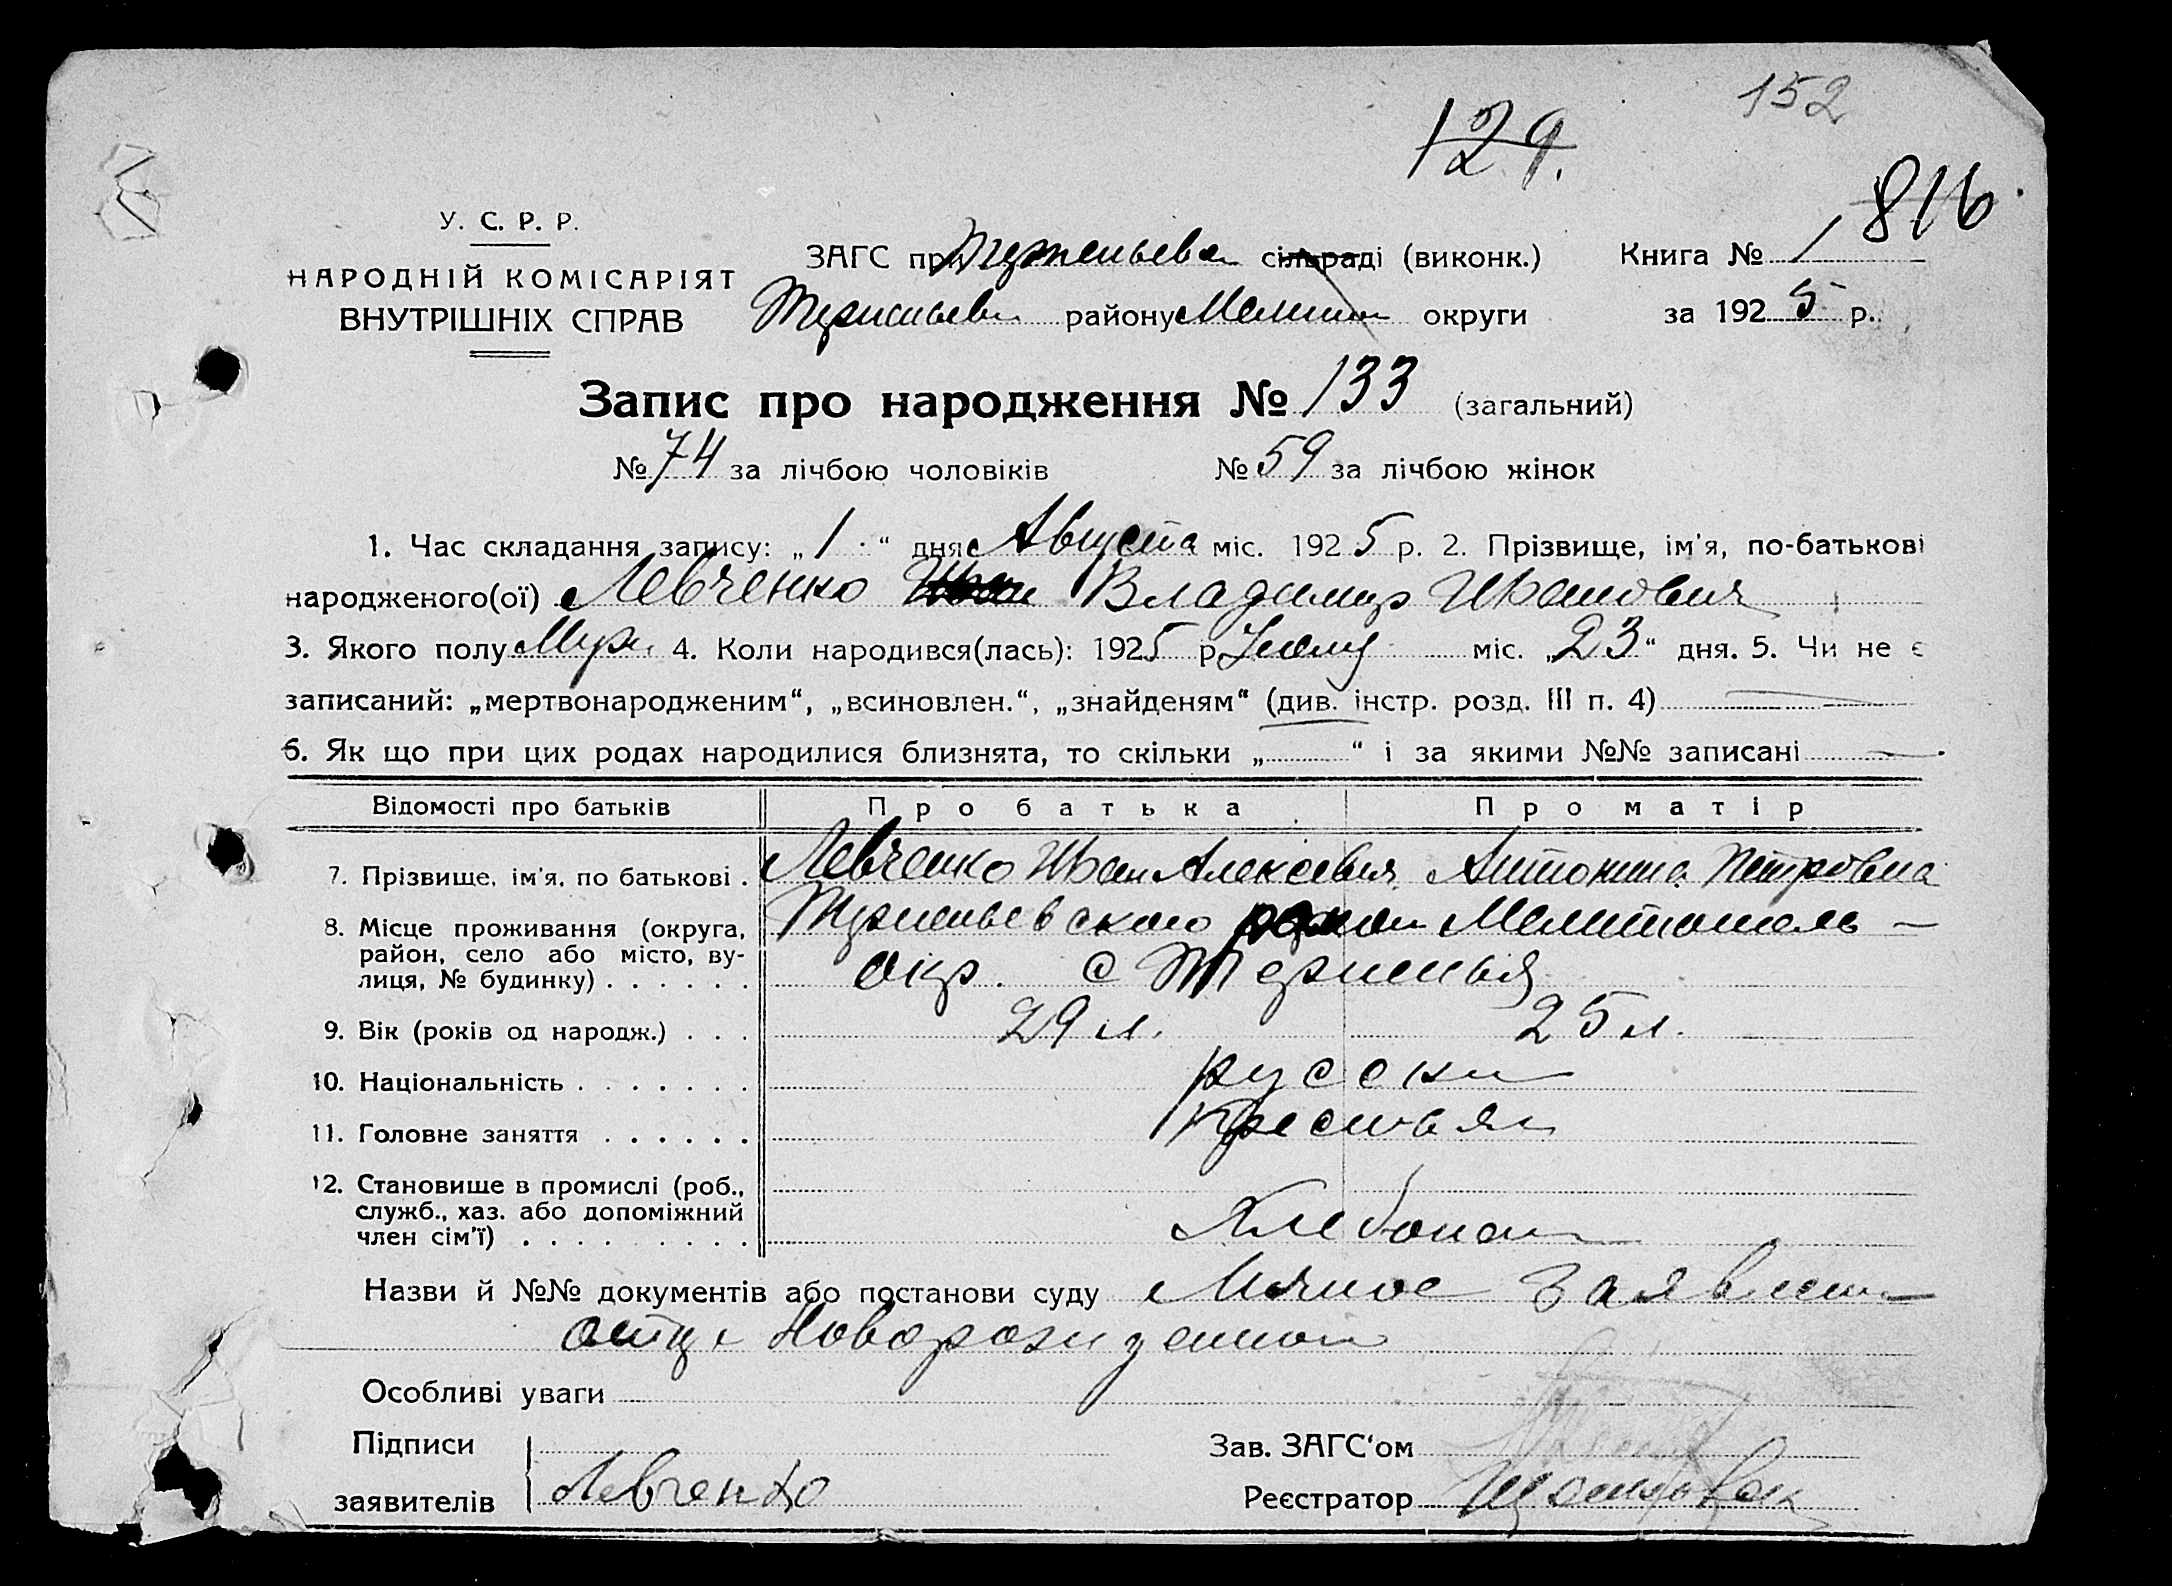 152
129.
816
У. С. Р. Р.
НАРОДНІЙ КОМІСАРІЯТ
ВНУТРІШНІХ СПРАВ
ЗАГС при сільраді (виконк.) Книга № 1
району Мелит округи за 1925 р.
Запис про народження № 133 (загальний)
№ 74 за лічбою чоловіків № 59 за лічбою жінок
1. Час складання запису: „1“ дня Августа міс. 1925 р. 2. Прізвище, ім'я, по-батькові
народженого(ої) Левченко Владимир Иванович
3. Якого полу Муж. 4. Коли народився(лась): 1925 р. міс. „23“ дня. 5. Чи не є
записаний: „мертвонародженим“, „всиновлен.“, „знайденям“ (див. інстр. розд. III п. 4)
6. Як що при цих родах народилися близнята, то скільки „ “ і за якими №№ записані
Відомості про батьків Про батька Про матір
7. Прізвище, ім'я, по батькові . Левченко Иван Алексеевич Антонина Петровна
8. Місце проживання (округа,
район, село або місто, ву-
лиця, № будинку) . . . . . .
Мелитополь
окр. с
9. Вік (років од народж.) . . . 29 л. 25 л.
10. Національність . . . . . . . русски
11. Головне заняття . . . . . . Крестьян
12. Становище в промислі (роб.,
служб., хаз. або допоміжний
член сім'ї) . . . . . . . . . Хлебопаш
Назви й №№ документів або постанови суду Личное заявлен
отца Новорожденного
Особливі уваги
Підписи Зав. ЗАГС'ом
заявителів Левченко Реєстратор